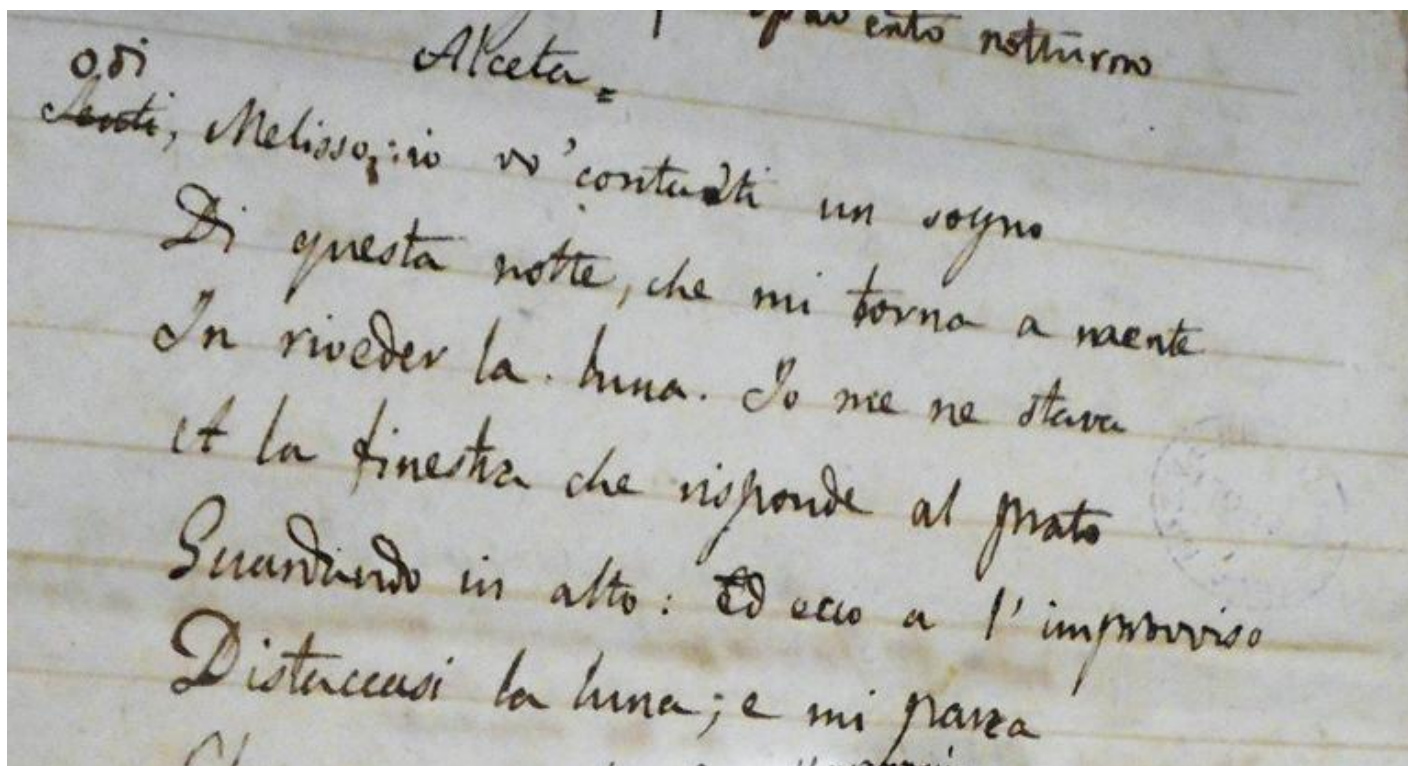 notturno
Alceta =
Odi
Senti, Melisso; io vo' contarti un sogno
Di questa notte, che mi torna a mente
In riveder la luna. Io me ne stava
A la finestra che risponde al prato
Guardando in alto: Ed ecco a l'improvviso
Distaccasi la luna; e mi parea